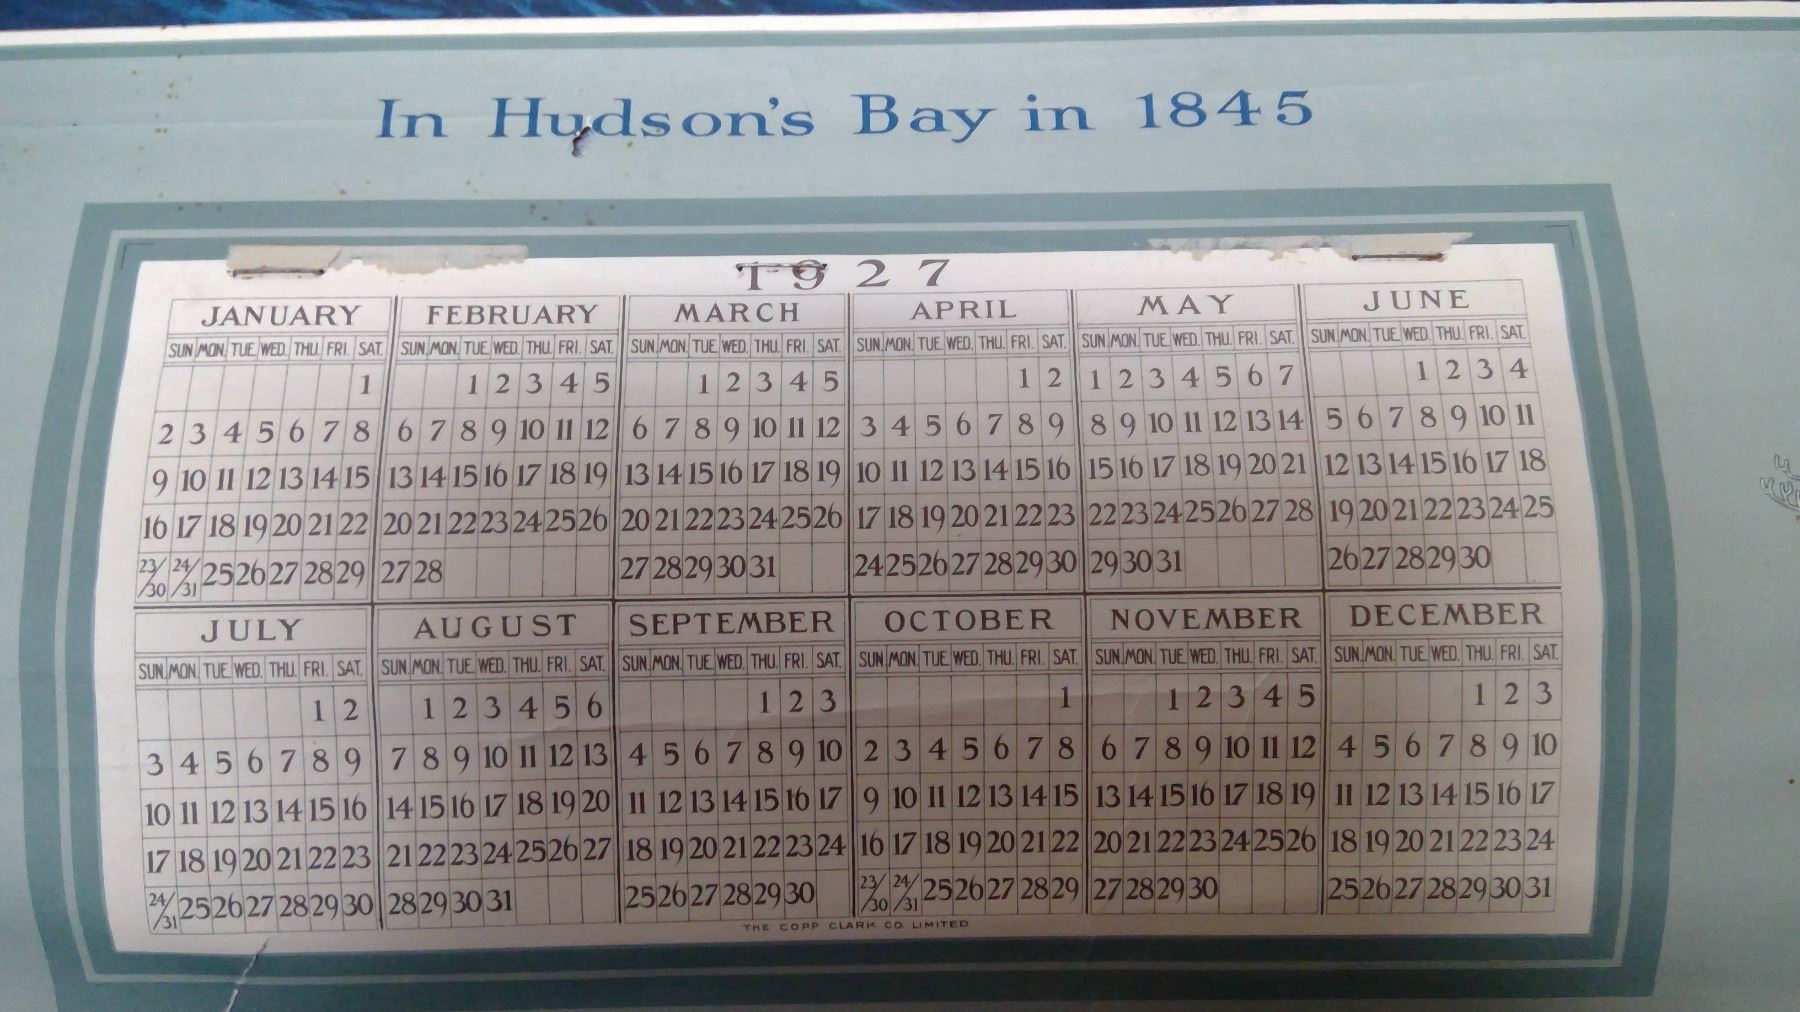 In Hudson's Bay in 1845
1927
JANUARY FEBRUARY MARCH APRIL MAY JUNE
SUN. MON. TUE. WED. THU. FRI. SAT. SUN. MON. TUE. WED. THU. FRI. SAT. SUN. MON. TUE. WED. THU. FRI. SAT. SUN. MON. TUE. WED. THU. FRI. SAT. SUN. MON. TUE. WED. THU. FRI. SAT. SUN. MON. TUE. WED. THU. FRI. SAT.
1 1 2 3 4 5 1 2 3 4 5 1 2 1 2 3 4 5 6 7 1 2 3 4
2 3 4 5 6 7 8 6 7 8 9 10 11 12 6 7 8 9 10 11 12 3 4 5 6 7 8 9 8 9 10 11 12 13 14 5 6 7 8 9 10 11
9 10 11 12 13 14 15 13 14 15 16 17 18 19 13 14 15 16 17 18 19 10 11 12 13 14 15 16 15 16 17 18 19 20 21 12 13 14 15 16 17 18
16 17 18 19 20 21 22 20 21 22 23 24 25 26 20 21 22 23 24 25 26 17 18 19 20 21 22 23 22 23 24 25 26 27 28 19 20 21 22 23 24 25
23/30 24/31 25 26 27 28 29 27 28 27 28 29 30 31 24 25 26 27 28 29 30 29 30 31 26 27 28 29 30
JULY AUGUST SEPTEMBER OCTOBER NOVEMBER DECEMBER
SUN. MON. TUE. WED. THU. FRI. SAT. SUN. MON. TUE. WED. THU. FRI. SAT. SUN. MON. TUE. WED. THU. FRI. SAT. SUN. MON. TUE. WED. THU. FRI. SAT. SUN. MON. TUE. WED. THU. FRI. SAT. SUN. MON. TUE. WED. THU. FRI. SAT.
1 2 1 2 3 4 5 6 1 2 3 1 1 2 3 4 5 1 2 3
3 4 5 6 7 8 9 7 8 9 10 11 12 13 4 5 6 7 8 9 10 2 3 4 5 6 7 8 6 7 8 9 10 11 12 4 5 6 7 8 9 10
10 11 12 13 14 15 16 14 15 16 17 18 19 20 11 12 13 14 15 16 17 9 10 11 12 13 14 15 13 14 15 16 17 18 19 11 12 13 14 15 16 17
17 18 19 20 21 22 23 21 22 23 24 25 26 27 18 19 20 21 22 23 24 16 17 18 19 20 21 22 20 21 22 23 24 25 26 18 19 20 21 22 23 24
24/31 25 26 27 28 29 30 28 29 30 31 25 26 27 28 29 30 23/30 24/31 25 26 27 28 29 27 28 29 30 25 26 27 28 29 30 31
THE COPP CLARK CO. LIMITED